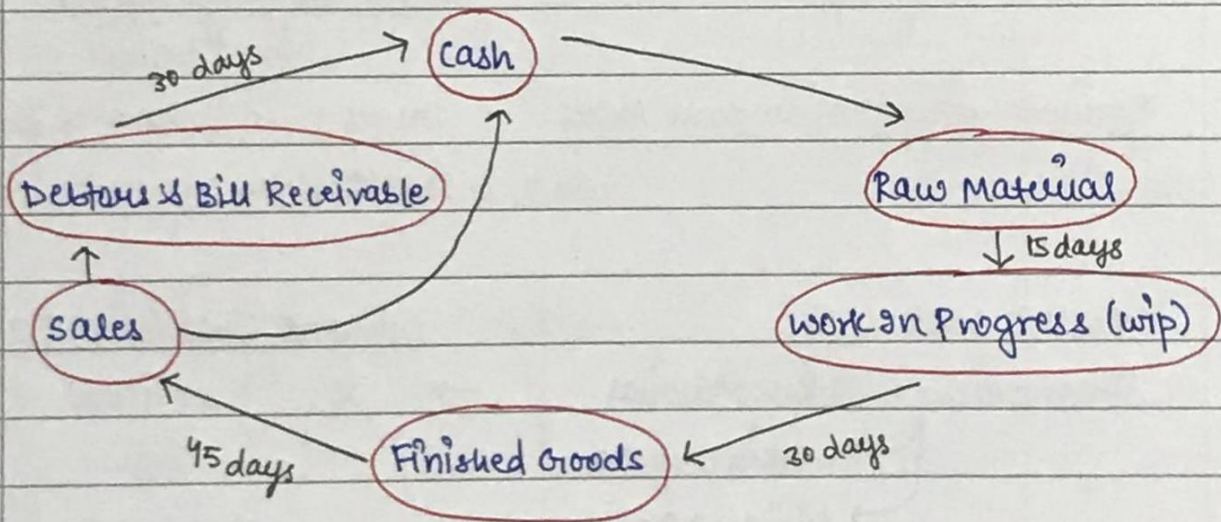 30 days
Cash
Debtors & Bill Receivable
Raw Material
15 days
Sales
Work In Progress (WIP)
45 days
Finished Goods
30 days